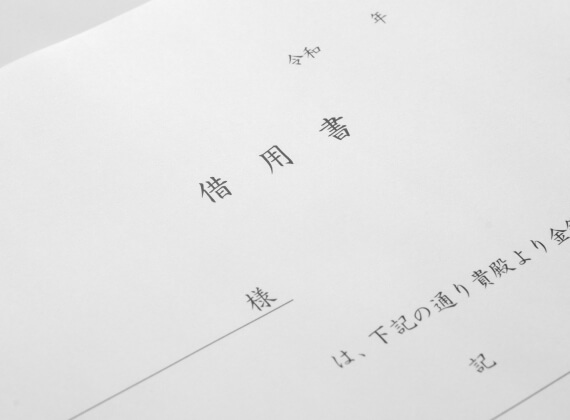 令和　　年
借用書
様
は、下記の通り貴殿より金
記